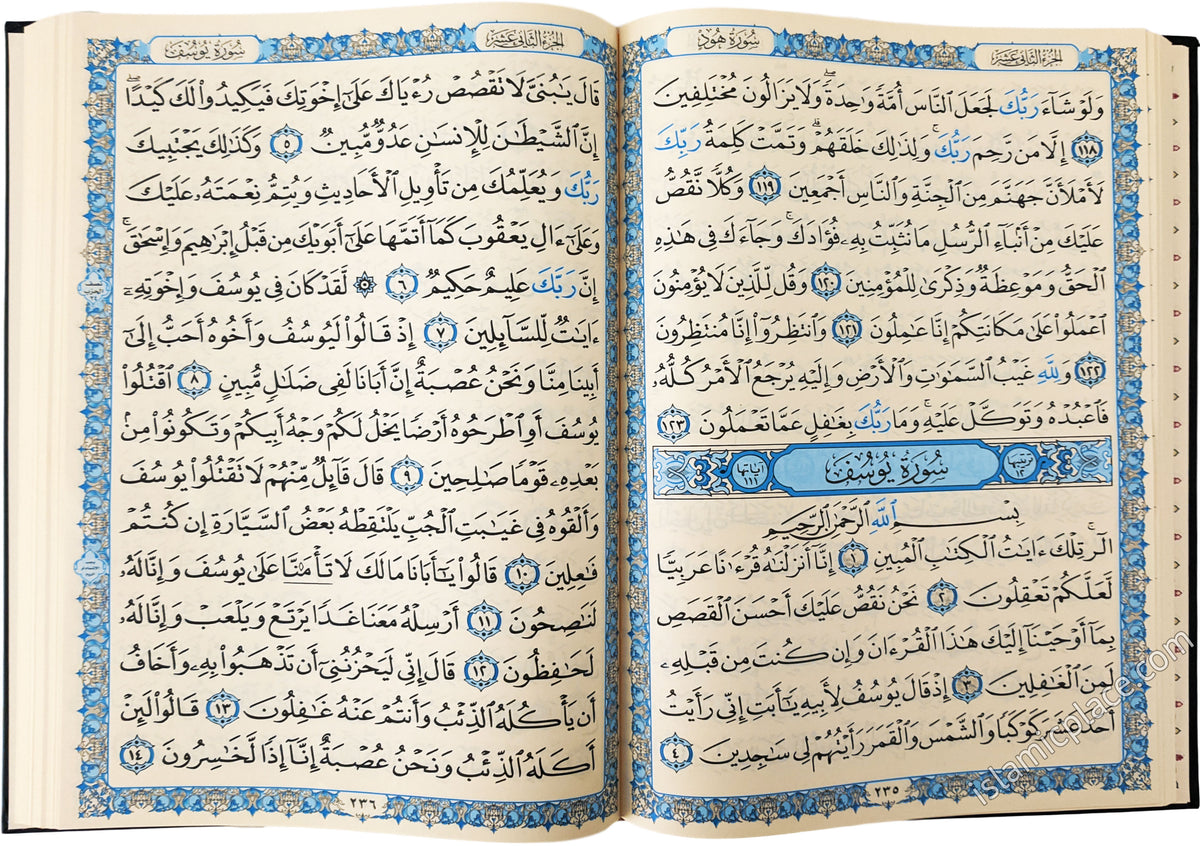 الجزء الثاني عشر
سورة هود
وَلَوْ شَآءَ رَبُّكَ لَجَعَلَ ٱلنَّاسَ أُمَّةً وَٰحِدَةً ۖ وَلَا يَزَالُونَ مُخْتَلِفِينَ
١١٨ إِلَّا مَن رَّحِمَ رَبُّكَ ۚ وَلِذَٰلِكَ خَلَقَهُمْ ۗ وَتَمَّتْ كَلِمَةُ رَبِّكَ
لَأَمْلَأَنَّ جَهَنَّمَ مِنَ ٱلْجِنَّةِ وَٱلنَّاسِ أَجْمَعِينَ ١١٩ وَكُلًّا نَّقُصُّ
عَلَيْكَ مِنْ أَنۢبَآءِ ٱلرُّسُلِ مَا نُثَبِّتُ بِهِۦ فُؤَادَكَ ۚ وَجَآءَكَ فِى هَٰذِهِ
ٱلْحَقُّ وَمَوْعِظَةٌ وَذِكْرَىٰ لِلْمُؤْمِنِينَ ١٢٠ وَقُل لِّلَّذِينَ لَا يُؤْمِنُونَ
ٱعْمَلُوا۟ عَلَىٰ مَكَانَتِكُمْ إِنَّا عَٰمِلُونَ ١٢١ وَٱنتَظِرُوٓا۟ إِنَّا مُنتَظِرُونَ
١٢٢ وَلِلَّهِ غَيْبُ ٱلسَّمَٰوَٰتِ وَٱلْأَرْضِ وَإِلَيْهِ يُرْجَعُ ٱلْأَمْرُ كُلُّهُۥ
فَٱعْبُدْهُ وَتَوَكَّلْ عَلَيْهِ ۚ وَمَا رَبُّكَ بِغَٰفِلٍ عَمَّا تَعْمَلُونَ ١٢٣
ترتيبها ١٢ سُورَةُ يُوسُفَ آياتها ١١١
بِسْمِ ٱللَّهِ ٱلرَّحْمَٰنِ ٱلرَّحِيمِ
الٓر ۚ تِلْكَ ءَايَٰتُ ٱلْكِتَٰبِ ٱلْمُبِينِ ١ إِنَّآ أَنزَلْنَٰهُ قُرْءَٰنًا عَرَبِيًّا
لَّعَلَّكُمْ تَعْقِلُونَ ٢ نَحْنُ نَقُصُّ عَلَيْكَ أَحْسَنَ ٱلْقَصَصِ
بِمَآ أَوْحَيْنَآ إِلَيْكَ هَٰذَا ٱلْقُرْءَانَ وَإِن كُنتَ مِن قَبْلِهِۦ
لَمِنَ ٱلْغَٰفِلِينَ ٣ إِذْ قَالَ يُوسُفُ لِأَبِيهِ يَٰٓأَبَتِ إِنِّى رَأَيْتُ
أَحَدَ عَشَرَ كَوْكَبًا وَٱلشَّمْسَ وَٱلْقَمَرَ رَأَيْتُهُمْ لِى سَٰجِدِينَ ٤
٢٣٥
الجزء الثاني عشر
سورة يوسف
قَالَ يَٰبُنَىَّ لَا تَقْصُصْ رُءْيَاكَ عَلَىٰٓ إِخْوَتِكَ فَيَكِيدُوا۟ لَكَ كَيْدًا ۖ
إِنَّ ٱلشَّيْطَٰنَ لِلْإِنسَٰنِ عَدُوٌّ مُّبِينٌ ٥ وَكَذَٰلِكَ يَجْتَبِيكَ
رَبُّكَ وَيُعَلِّمُكَ مِن تَأْوِيلِ ٱلْأَحَادِيثِ وَيُتِمُّ نِعْمَتَهُۥ عَلَيْكَ
وَعَلَىٰٓ ءَالِ يَعْقُوبَ كَمَآ أَتَمَّهَا عَلَىٰٓ أَبَوَيْكَ مِن قَبْلُ إِبْرَٰهِيمَ وَإِسْحَٰقَ ۚ
إِنَّ رَبَّكَ عَلِيمٌ حَكِيمٌ ٦ ۞ لَّقَدْ كَانَ فِى يُوسُفَ وَإِخْوَتِهِۦٓ
ءَايَٰتٌ لِّلسَّآئِلِينَ ٧ إِذْ قَالُوا۟ لَيُوسُفُ وَأَخُوهُ أَحَبُّ إِلَىٰٓ
أَبِينَا مِنَّا وَنَحْنُ عُصْبَةٌ إِنَّ أَبَانَا لَفِى ضَلَٰلٍ مُّبِينٍ ٨ ٱقْتُلُوا۟
يُوسُفَ أَوِ ٱطْرَحُوهُ أَرْضًا يَخْلُ لَكُمْ وَجْهُ أَبِيكُمْ وَتَكُونُوا۟ مِنۢ
بَعْدِهِۦ قَوْمًا صَٰلِحِينَ ٩ قَالَ قَآئِلٌ مِّنْهُمْ لَا تَقْتُلُوا۟ يُوسُفَ
وَأَلْقُوهُ فِى غَيَٰبَتِ ٱلْجُبِّ يَلْتَقِطْهُ بَعْضُ ٱلسَّيَّارَةِ إِن كُنتُمْ
فَٰعِلِينَ ١٠ قَالُوا۟ يَٰٓأَبَانَا مَا لَكَ لَا تَأْمَ۫نَّا عَلَىٰ يُوسُفَ وَإِنَّا لَهُۥ
لَنَٰصِحُونَ ١١ أَرْسِلْهُ مَعَنَا غَدًا يَرْتَعْ وَيَلْعَبْ وَإِنَّا لَهُۥ
لَحَٰفِظُونَ ١٢ قَالَ إِنِّى لَيَحْزُنُنِىٓ أَن تَذْهَبُوا۟ بِهِۦ وَأَخَافُ
أَن يَأْكُلَهُ ٱلذِّئْبُ وَأَنتُمْ عَنْهُ غَٰفِلُونَ ١٣ قَالُوا۟ لَئِنْ
أَكَلَهُ ٱلذِّئْبُ وَنَحْنُ عُصْبَةٌ إِنَّآ إِذًا لَّخَٰسِرُونَ ١٤
٢٣٦
islamicplace.com